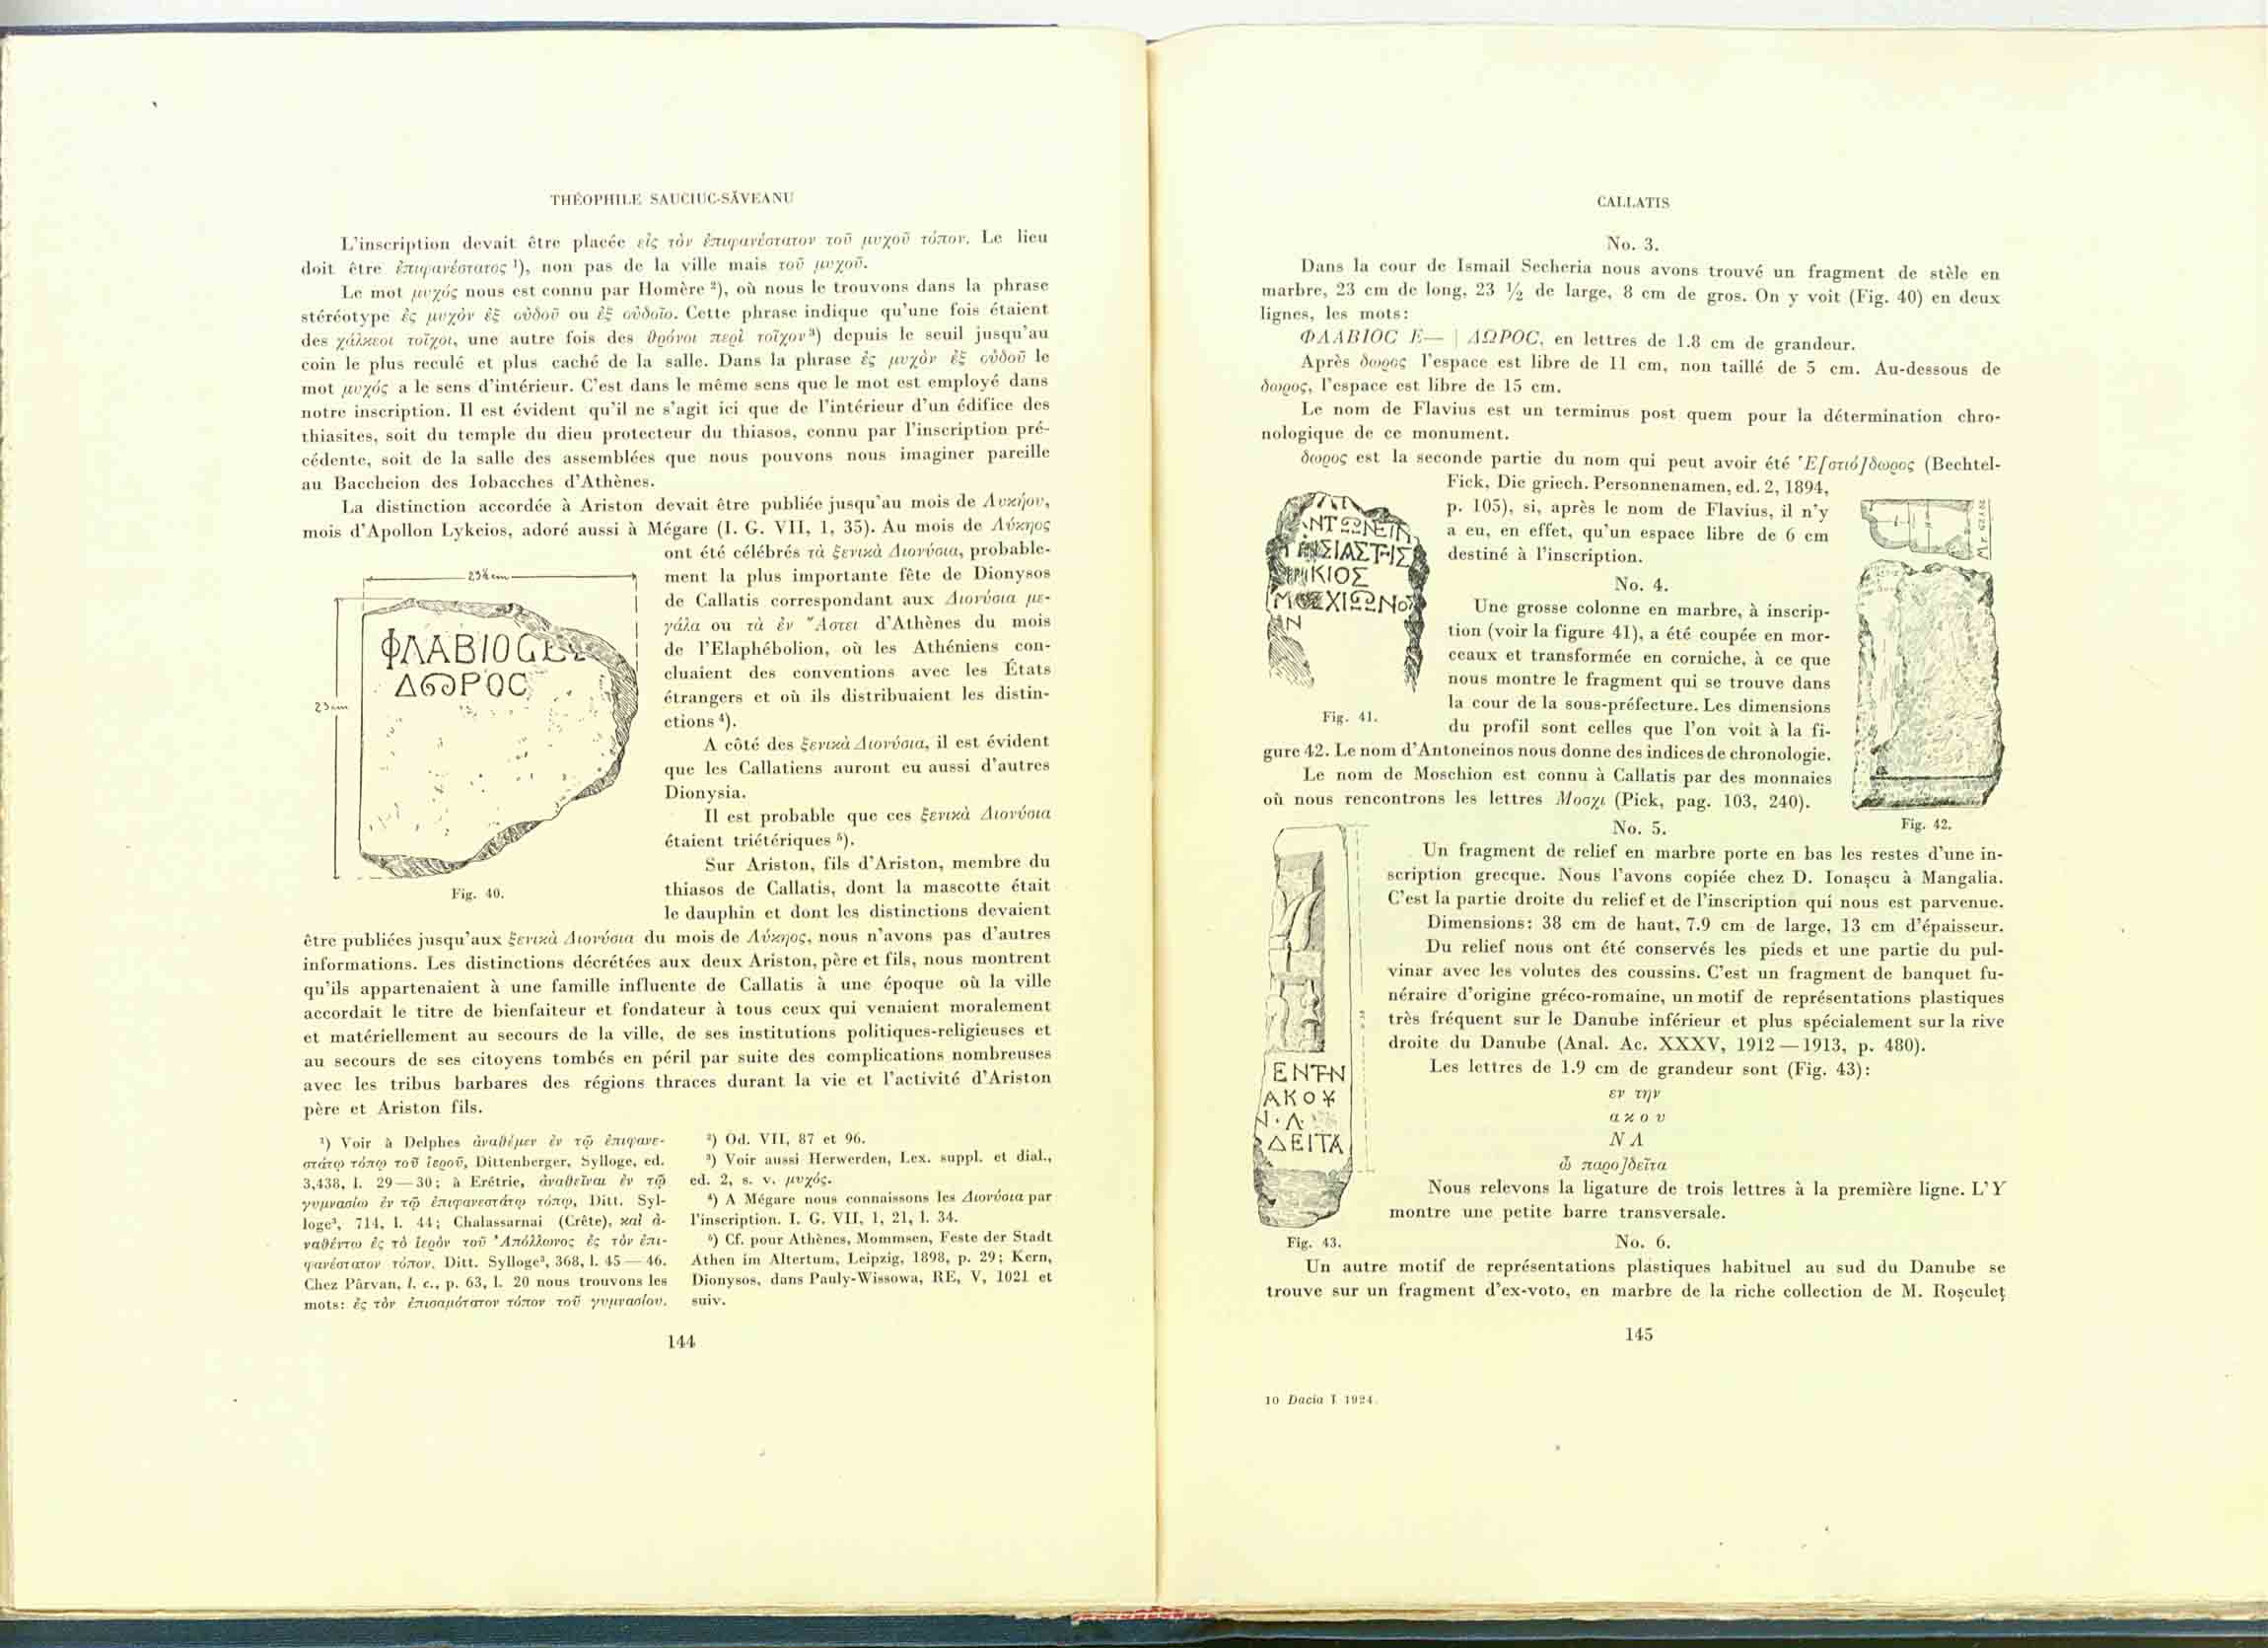 THÉOPHILE SAUCIUC-SĂVEANU
L'inscription devait être placée εἰς τὸν ἐπιφανέστατον τοῦ μυχοῦ τόπον. Le lieu
doit être ἐπιφανέστατος ¹), non pas de la ville mais τοῦ μυχοῦ.
Le mot μυχός nous est connu par Homère ²), où nous le trouvons dans la phrase
stéréotype ἐς μυχὸν ἐξ οὐδοῦ ou ἐξ οὐδοῖο. Cette phrase indique qu'une fois étaient
des χάλκεοι τοῖχοι, une autre fois des θρόνοι περὶ τοῖχον ³) depuis le seuil jusqu'au
coin le plus reculé et plus caché de la salle. Dans la phrase ἐς μυχὸν ἐξ οὐδοῦ le
mot μυχός a le sens d'intérieur. C'est dans le même sens que le mot est employé dans
notre inscription. Il est évident qu'il ne s'agit ici que de l'intérieur d'un édifice des
thiasites, soit du temple du dieu protecteur du thiasos, connu par l'inscription pré-
cédente, soit de la salle des assemblées que nous pouvons nous imaginer pareille
au Baccheion des Iobacches d'Athènes.
La distinction accordée à Ariston devait être publiée jusqu'au mois de Λυκήου,
mois d'Apollon Lykeios, adoré aussi à Mégare (I. G. VII, 1, 35). Au mois de Λύκηος
ont été célébrés τὰ ξενικὰ Διονύσια, probable-
ment la plus importante fête de Dionysos
de Callatis correspondant aux Διονύσια με-
γάλα ou τὰ ἐν Ἄστει d'Athènes du mois
de l'Elaphébolion, où les Athéniens con-
cluaient des conventions avec les États
étrangers et où ils distribuaient les distin-
ctions ⁴).
A côté des ξενικὰ Διονύσια, il est évident
que les Callatiens auront eu aussi d'autres
Dionysia.
Il est probable que ces ξενικὰ Διονύσια
étaient triétériques ⁵).
Sur Ariston, fils d'Ariston, membre du
thiasos de Callatis, dont la mascotte était
le dauphin et dont les distinctions devaient
23½ cm
23 cm
ΦΛΑΒΙΟϹ Ε
ΔΩΡΟϹ
Fig. 40.
être publiées jusqu'aux ξενικὰ Διονύσια du mois de Λύκηος, nous n'avons pas d'autres
informations. Les distinctions décrétées aux deux Ariston, père et fils, nous montrent
qu'ils appartenaient à une famille influente de Callatis à une époque où la ville
accordait le titre de bienfaiteur et fondateur à tous ceux qui venaient moralement
et matériellement au secours de la ville, de ses institutions politiques-religieuses et
au secours de ses citoyens tombés en péril par suite des complications nombreuses
avec les tribus barbares des régions thraces durant la vie et l'activité d'Ariston
père et Ariston fils.
¹) Voir à Delphes ἀναθέμεν ἐν τῷ ἐπιφανε-
στάτῳ τόπῳ τοῦ ἱεροῦ, Dittenberger, Sylloge, ed.
3,438, l. 29—30; à Erétrie, ἀναθεῖναι ἐν τῷ
γυμνασίῳ ἐν τῷ ἐπιφανεστάτῳ τόπῳ, Ditt. Syl-
loge³, 714, l. 44; Chalassarnai (Crête), καὶ ἀ-
ναθέντω ἐς τὸ ἱερὸν τοῦ Ἀπόλλωνος ἐς τὸν ἐπι-
φανέστατον τόπον. Ditt. Sylloge³, 368, l. 45—46.
Chez Pârvan, l. c., p. 63, l. 20 nous trouvons les
mots: ἐς τὸν ἐπισαμότατον τόπον τοῦ γυμνασίου.
²) Od. VII, 87 et 96.
³) Voir aussi Herwerden, Lex. suppl. et dial.,
ed. 2, s. v. μυχός.
⁴) A Mégare nous connaissons les Διονύσια par
l'inscription. I. G. VII, 1, 21, l. 34.
⁵) Cf. pour Athènes, Mommsen, Feste der Stadt
Athen im Altertum, Leipzig, 1898, p. 29; Kern,
Dionysos, dans Pauly-Wissowa, RE, V, 1021 et
suiv.
144
CALLATIS
No. 3.
Dans la cour de Ismail Secheria nous avons trouvé un fragment de stèle en
marbre, 23 cm de long, 23 ½ de large, 8 cm de gros. On y voit (Fig. 40) en deux
lignes, les mots:
ΦΛΑΒΙΟϹ Ε— | ΔΩΡΟϹ, en lettres de 1.8 cm de grandeur.
Après δωρος l'espace est libre de 11 cm, non taillé de 5 cm. Au-dessous de
δωρος, l'espace est libre de 15 cm.
Le nom de Flavius est un terminus post quem pour la détermination chro-
nologique de ce monument.
δωρος est la seconde partie du nom qui peut avoir été Ἑ[στιό]δωρος (Bechtel-
Fick, Die griech. Personnenamen, ed. 2, 1894,
p. 105), si, après le nom de Flavius, il n'y
a eu, en effet, qu'un espace libre de 6 cm
destiné à l'inscription.
No. 4.
Une grosse colonne en marbre, à inscrip-
tion (voir la figure 41), a été coupée en mor-
ceaux et transformée en corniche, à ce que
nous montre le fragment qui se trouve dans
la cour de la sous-préfecture. Les dimensions
du profil sont celles que l'on voit à la fi-
gure 42. Le nom d'Antoneinos nous donne des indices de chronologie.
Le nom de Moschion est connu à Callatis par des monnaies
où nous rencontrons les lettres Μοσχι (Pick, pag. 103, 240).
ΝΤΩΝΕΙΝ
ΣΙΑΣΤΗΣ
ΚΙΟΣ
ΜΟΣΧΙΩΝΟ
Ν
Fig. 41.
Fig. 42.
No. 5.
Un fragment de relief en marbre porte en bas les restes d'une in-
scription grecque. Nous l'avons copiée chez D. Ionașcu à Mangalia.
C'est la partie droite du relief et de l'inscription qui nous est parvenue.
Dimensions: 38 cm de haut, 7.9 cm de large, 13 cm d'épaisseur.
Du relief nous ont été conservés les pieds et une partie du pul-
vinar avec les volutes des coussins. C'est un fragment de banquet fu-
néraire d'origine gréco-romaine, un motif de représentations plastiques
très fréquent sur le Danube inférieur et plus spécialement sur la rive
droite du Danube (Anal. Ac. XXXV, 1912—1913, p. 480).
Les lettres de 1.9 cm de grandeur sont (Fig. 43):
εν την
α κ ο υ
Ν Λ
ὦ παρο]δεῖτα
Nous relevons la ligature de trois lettres à la première ligne. L'Y
montre une petite barre transversale.
ΕΝΤΗΝ
ΑΚΟΥ
Ν·Λ
ΔΕΙΤΑ
Fig. 43.
No. 6.
Un autre motif de représentations plastiques habituel au sud du Danube se
trouve sur un fragment d'ex-voto, en marbre de la riche collection de M. Roșculeț
145
10 Dacia I 1924.